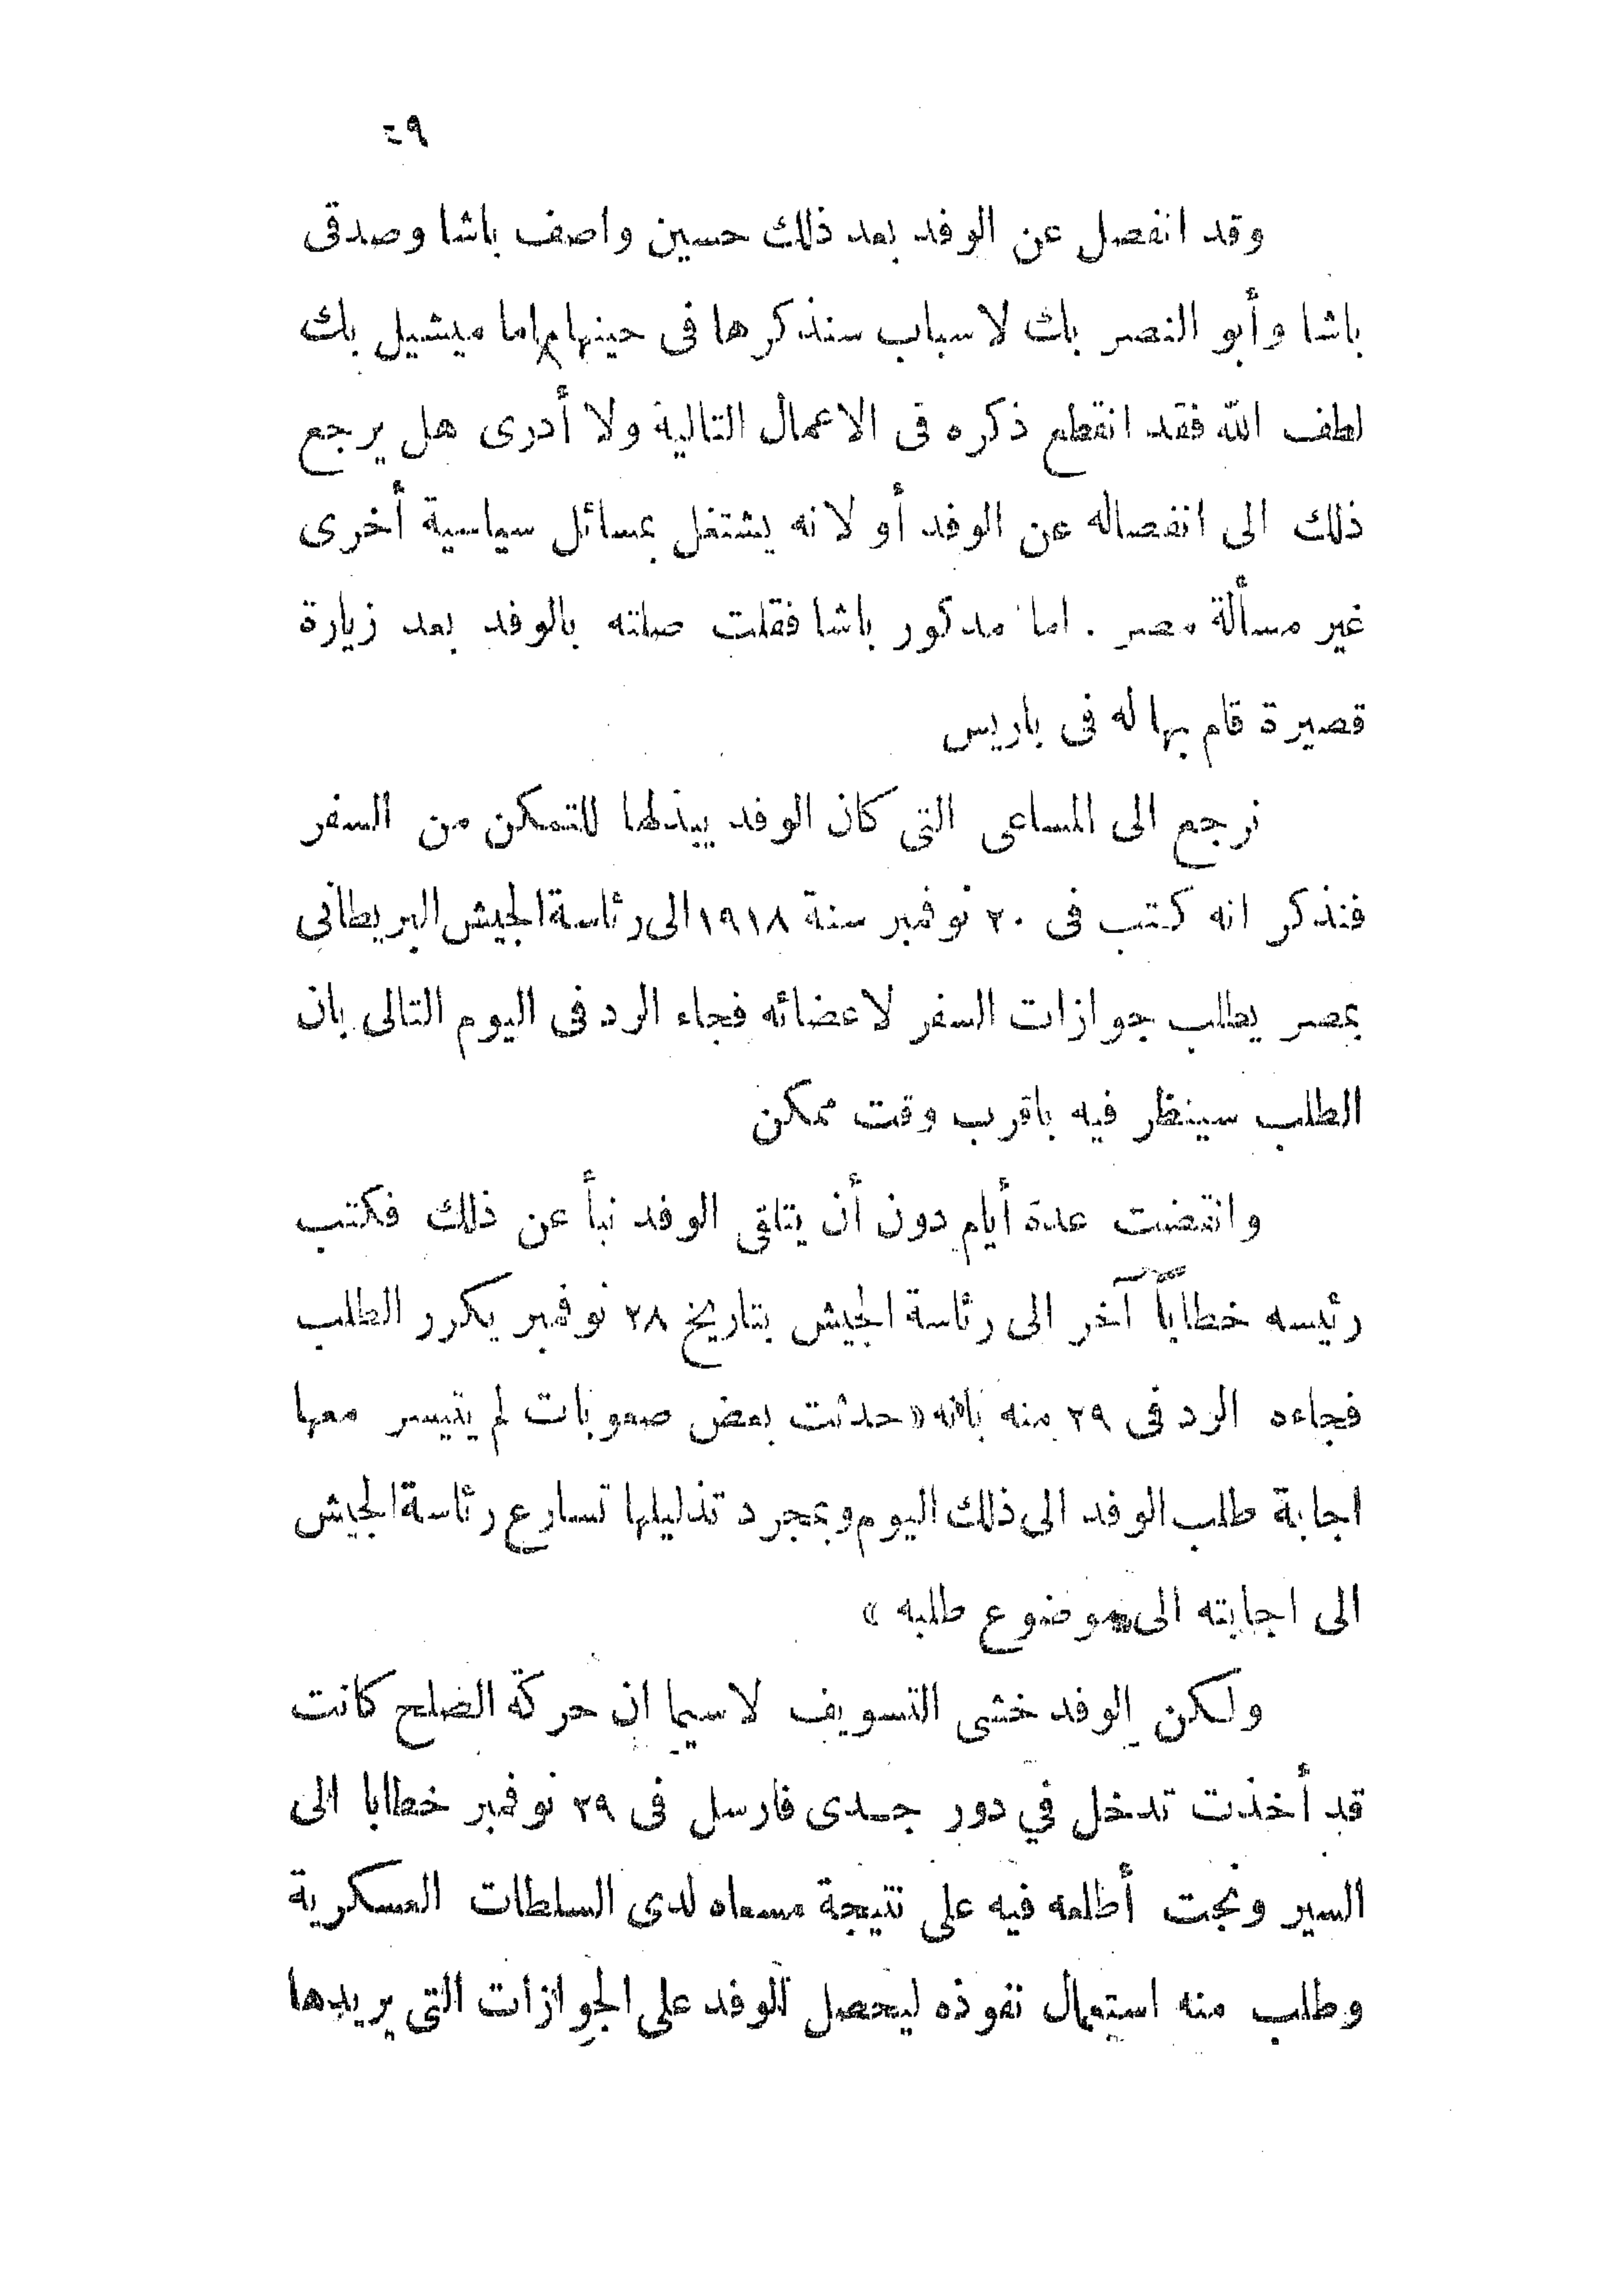 ٤٩
وقد انفصل عن الوفد بعد ذلك حسين واصف باشا وصدقى
باشا وأبو النصر بك لاسباب سنذكرها فى حينها اما ميشيل بك
لطف الله فقد انقطع ذكره فى الاعمال التالية ولا أدرى هل يرجع
ذلك الى انفصاله عن الوفد أو لانه يشتغل بمسائل سياسية أخرى
غير مسألة مصر . اما مدكور باشا فقلت صلته بالوفد بعد زيارة
قصيرة قام بها له فى باريس
نرجع الى المساعى التى كان الوفد يبذلها للتمكن من السفر
فنذكر انه كتب فى ٢٠ نوفمبر سنة ١٩١٨ الى رئاسة الجيش البريطانى
بمصر يطلب جوازات السفر لاعضائه فجاء الرد فى اليوم التالى بان
الطلب سينظر فيه باقرب وقت ممكن
وانقضت عدة أيام دون أن يتلقى الوفد نبأ عن ذلك فكتب
رئيسه خطاباً آخر الى رئاسة الجيش بتاريخ ٢٨ نوفمبر يكرر الطلب
فجاءه الرد فى ٢٩ منه بانه « حدثت بعض صعوبات لم يتيسر معها
اجابة طلب الوفد الى ذلك اليوم وبمجرد تذليلها تسارع رئاسة الجيش
الى اجابته الى موضوع طلبه »
ولكن الوفد خشى التسويف لاسيما ان حركة الصلح كانت
قد أخذت تدخل في دور جدى فارسل فى ٢٩ نوفمبر خطابا الى
السير ونجت أطلعه فيه على نتيجة مسعاه لدى السلطات العسكرية
وطلب منه استعمال نفوذه ليحصل الوفد على الجوازات التى يريدها